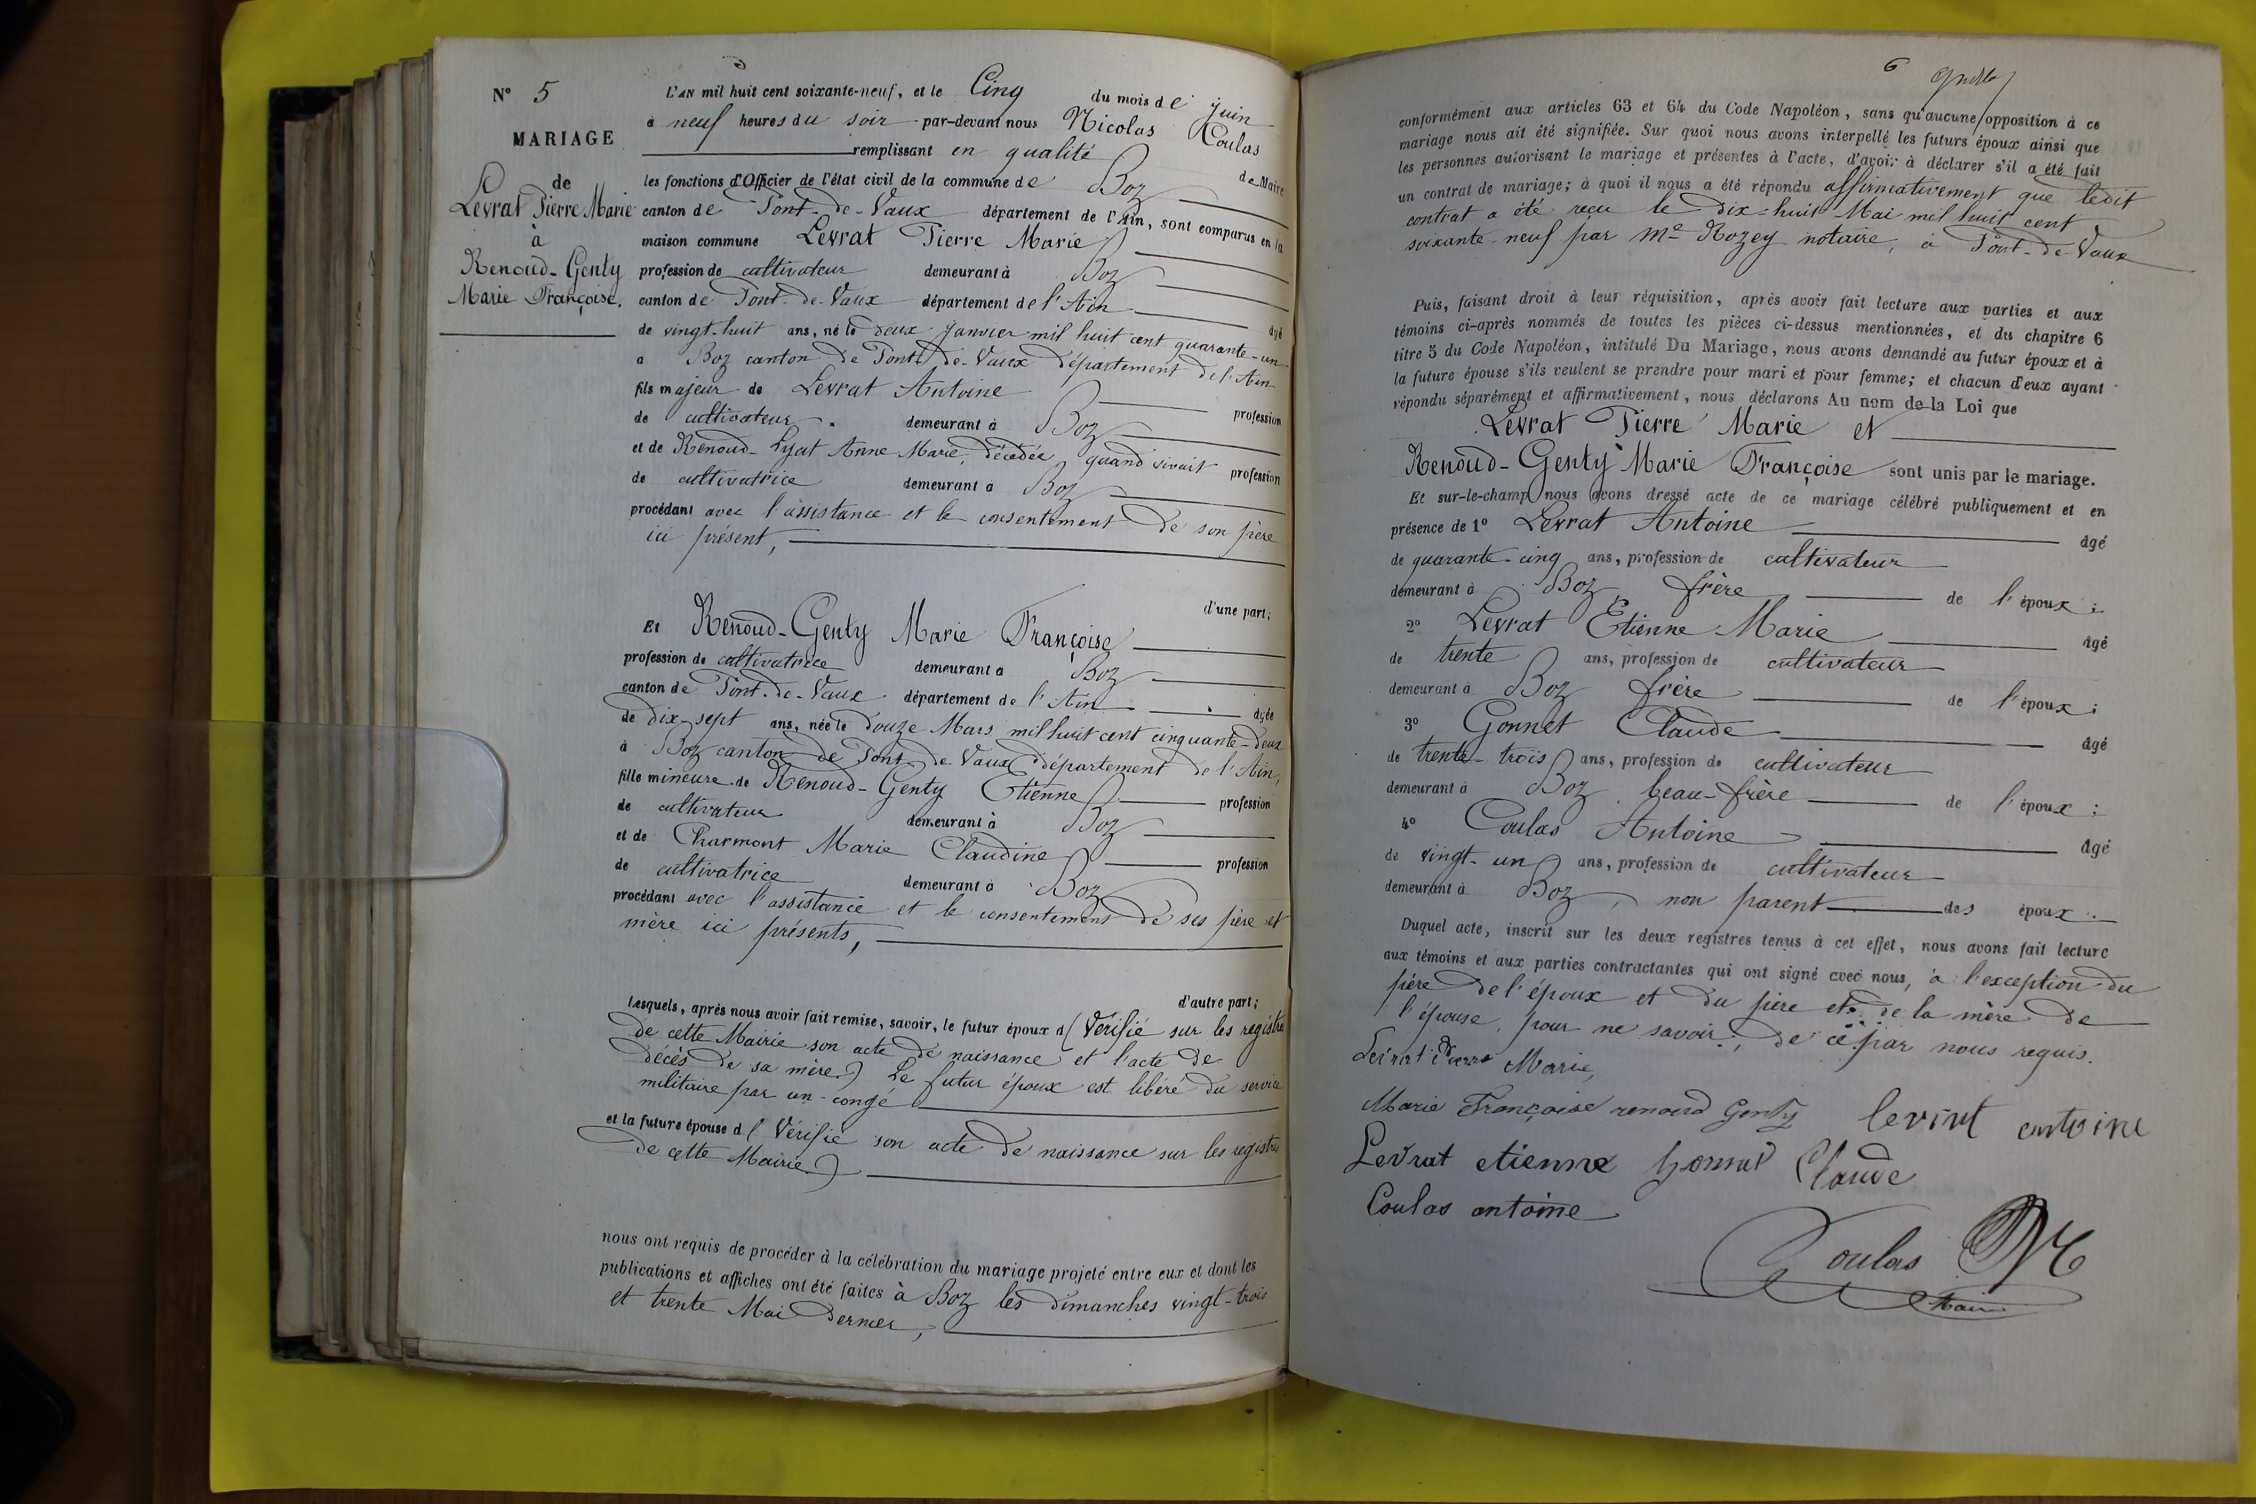 N° 5
MARIAGE
de
Levrat Pierre Marie
à
Renoud-Genty
Marie Françoise.
6
L'AN mil huit cent soixante-neuf, et le Cinq du mois de juin
à neuf heures du soir par-devant nous Nicolas Coulas
remplissant en qualité de Maire
les fonctions d'Officier de l'état civil de la commune de Boz
canton de Pont-de-Vaux département de l'Ain, sont comparus en la
maison commune Levrat Pierre Marie
profession de cultivateur demeurant à Boz
canton de Pont-de-Vaux département de l'Ain âgé
de vingt-huit ans, né le deux janvier mil huit cent quarante-un
à Boz canton de Pont-de-Vaux département de l'Ain
fils majeur de Levrat Antoine profession
de cultivateur demeurant à Boz
et de Renoud-Lyat Anne Marie, décédée, quand vivait profession
de cultivatrice demeurant à Boz
procédant avec l'assistance et le consentement de son père
ici présent,
d'une part;
Et Renoud-Genty Marie Françoise
profession de cultivatrice demeurant à Boz
canton de Pont-de-Vaux département de l'Ain âgée
de dix-sept ans, née le douze Mars mil huit cent cinquante-deux
à Boz canton de Pont de Vaux département de l'Ain,
fille mineure de Renoud-Genty Etienne profession
de cultivateur demeurant à Boz
et de Charmont Marie Claudine profession
de cultivatrice demeurant à Boz
procédant avec l'assistance et le consentement de ses père et
mère ici présents,
d'autre part;
Lesquels, après nous avoir fait remise, savoir, le futur époux d (Vérifié sur les registres
de cette Mairie son acte de naissance et l'acte de
décès de sa mère.) Le futur époux est libéré du service
militaire par un congé
et la future épouse d (Vérifié son acte de naissance sur les registres
de cette Mairie.)
nous ont requis de procéder à la célébration du mariage projeté entre eux et dont les
publications et affiches ont été faites à Boz les dimanches vingt-trois
et trente Mai dernier,
6
conformément aux articles 63 et 64 du Code Napoléon, sans qu'aucune opposition à ce
mariage nous ait été signifiée. Sur quoi nous avons interpellé les futurs époux ainsi que
les personnes autorisant le mariage et présentes à l'acte, d'avoir à déclarer s'il a été fait
un contrat de mariage; à quoi il nous a été répondu affirmativement que ledit
contrat a été reçu le dix-huit Mai mil huit cent
soixante-neuf par Me Rozey notaire, à Pont-de-Vaux
Puis, faisant droit à leur réquisition, après avoir fait lecture aux parties et aux
témoins ci-après nommés de toutes les pièces ci-dessus mentionnées, et du chapitre 6
titre 5 du Code Napoléon, intitulé Du Mariage, nous avons demandé au futur époux et à
la future épouse s'ils veulent se prendre pour mari et pour femme; et chacun d'eux ayant
répondu séparément et affirmativement, nous déclarons Au nom de la Loi que
Levrat Pierre Marie et
Renoud-Genty Marie Françoise sont unis par le mariage.
Et sur-le-champ nous avons dressé acte de ce mariage célébré publiquement et en
présence de 1° Levrat Antoine âgé
de quarante-cinq ans, profession de cultivateur
demeurant à Boz, frère de l'époux;
2° Levrat Etienne Marie âgé
de trente ans, profession de cultivateur
demeurant à Boz frère de l'époux;
3° Gonnet Claude âgé
de trente-trois ans, profession de cultivateur
demeurant à Boz beau-frère de l'époux;
4° Coulas Antoine âgé
de vingt-un ans, profession de cultivateur
demeurant à Boz, non parent des époux.
Duquel acte, inscrit sur les deux registres tenus à cet effet, nous avons fait lecture
aux témoins et aux parties contractantes qui ont signé avec nous, à l'exception du
père de l'époux et du père et de la mère de
l'épouse, pour ne savoir, de ce par nous requis.
Levrat Pierre Marie,
Marie Françoise renoud Genty levrat antoine
Levrat etienne Gonnet Claude
Coulas antoine
Coulas
Maire